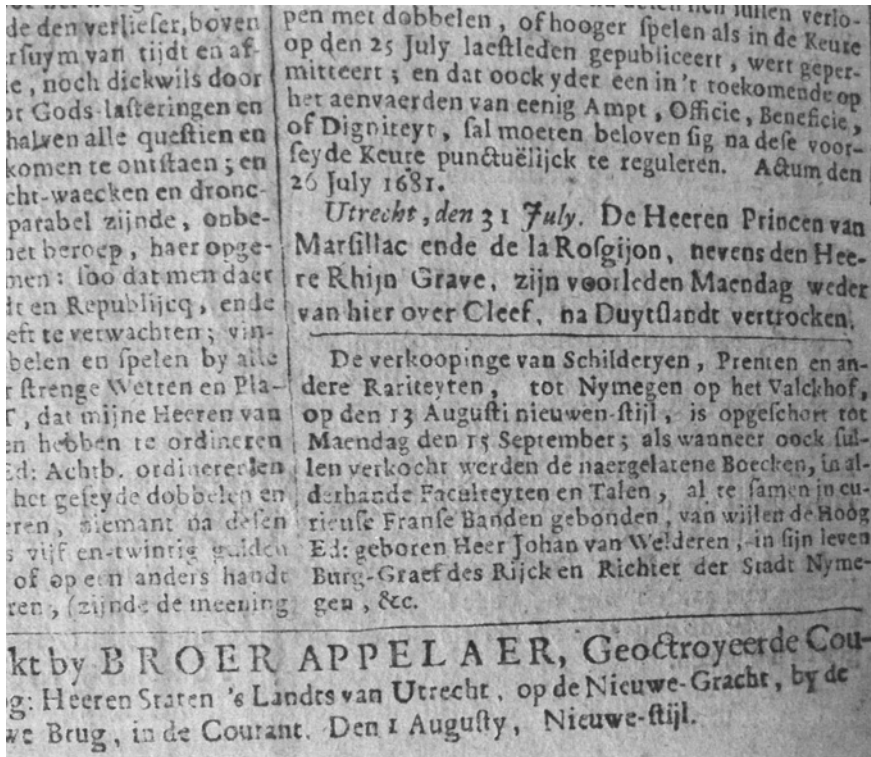 de den verlieser, boven
rsuym van tijdt en af-
e, noch dickwils door
ot Gods-lasteringen en
halven alle questien en
komen te ontstaen; en
cht-waecken en dronc-
parabel zijnde, onbe-
net beroep, haer opge-
men: soo dat men daer
dt en Republijcq, ende
eft te verwachten; vin-
belen en spelen by alle
r strenge Wetten en Pla-
T, dat mijne Heeren van
en hebben te ordineren
Ed: Achtb. ordinereren
het geseyde dobbelen en
eren, niemant na desen
s vijf en-twintig gulden
of op een anders handt
ren, (zijnde de meening
pen met dobbelen, of hooger spelen als in de Keure
op den 25 July laestleden gepubliceert, wert geper-
mitteert; en dat oock yder een in't toekomende op
het aenvaerden van eenig Ampt, Officie, Beneficie,
of Digniteyt, sal moeten beloven sig na dese voor-
seyde Keure punctuëlijck te reguleren. Actum den
26 July 1681.
Utrecht, den 31 July. De Heeren Princen van
Marsillac ende de la Rosgijon, nevens den Hee-
re Rhijn Grave, zijn voorleden Maendag weder
van hier over Cleef, na Duytslandt vertrocken.
De verkoopinge van Schilderyen, Prenten en an-
dere Rariteyten, tot Nymegen op het Valckhof,
op den 13 Augusti nieuwen-stijl, is opgeschort tot
Maendag den 15 September; als wanneer oock sul-
len verkocht werden de naergelatene Boecken, in al-
derhande Faculteyten en Talen, al te samen in cu-
rieuse Franse Banden gebonden, van wijlen de Hoog
Ed: geboren Heer Johan van Welderen, in sijn leven
Burg-Graef des Rijck en Richter der Stadt Nyme-
gen, &c.
kt by BROER APPELAER, Geoctroyeerde Cou-
g: Heeren Staten 's Landts van Utrecht, op de Nieuwe-Gracht, by de
we Brug, in de Courant. Den 1 Augusty, Nieuwe-stijl.